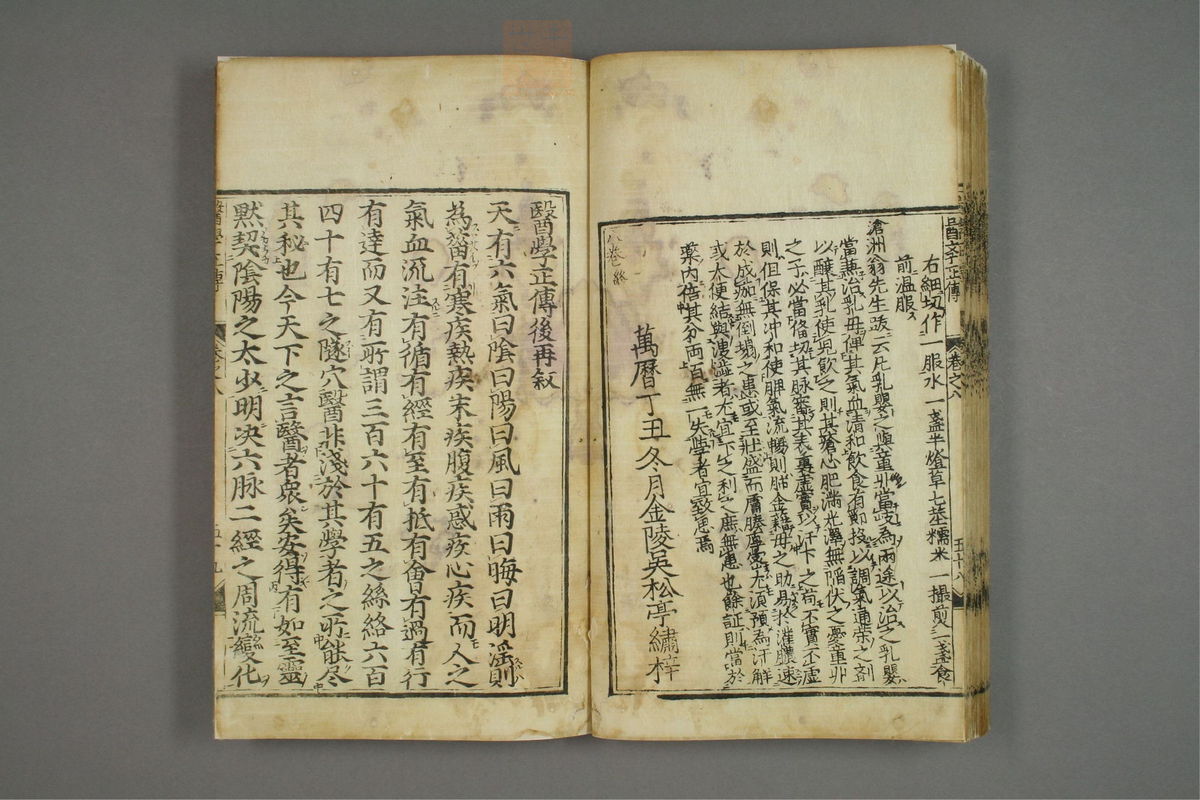 醫學正傳　卷之八　五十八
右細切作一服水一盞半燈草七莖糯米一撮煎七盞食
前溫服
滄洲翁先生逖云凡乳嬰之與童丱當岐為兩途以治之乳嬰
當兼治乳母俾其氣血清和飲食有節投以調氣通榮之劑
以釀其乳使兒飲之則其瘡心肥滿光澤無陷伏之憂童丱
之子必當俻切其脉審其表裏虛實以汗下之苟不實不虛
則但保其沖和使脾氣流暢則肺金藉母之助易於灌膿速
於成痂無倒塌之患或至壯盛而膚腠厚密尤須預為汗解
或大便結與溲澁者尤宜下之利之庶無患也餘証則當於
藥內倍其分兩百無一失學者宜致思焉
萬曆丁丑冬月金陵吳松亭繡梓
八卷終
醫學正傳後再敘
天有六氣曰陰曰陽曰風曰雨曰晦曰明滛則
為菑有寒疾熱疾末疾腹疾惑疾心疾而人之
氣血流注有循有經有至有抵有會有過有行
有達而又有所謂三百六十有五之絲絡六百
四十有七之隧穴醫非淺於其學者之所能尽
其秘也今天下之言醫者衆矣安得有如至靈
黙契陰陽之太少明决六脉二經之周流變化